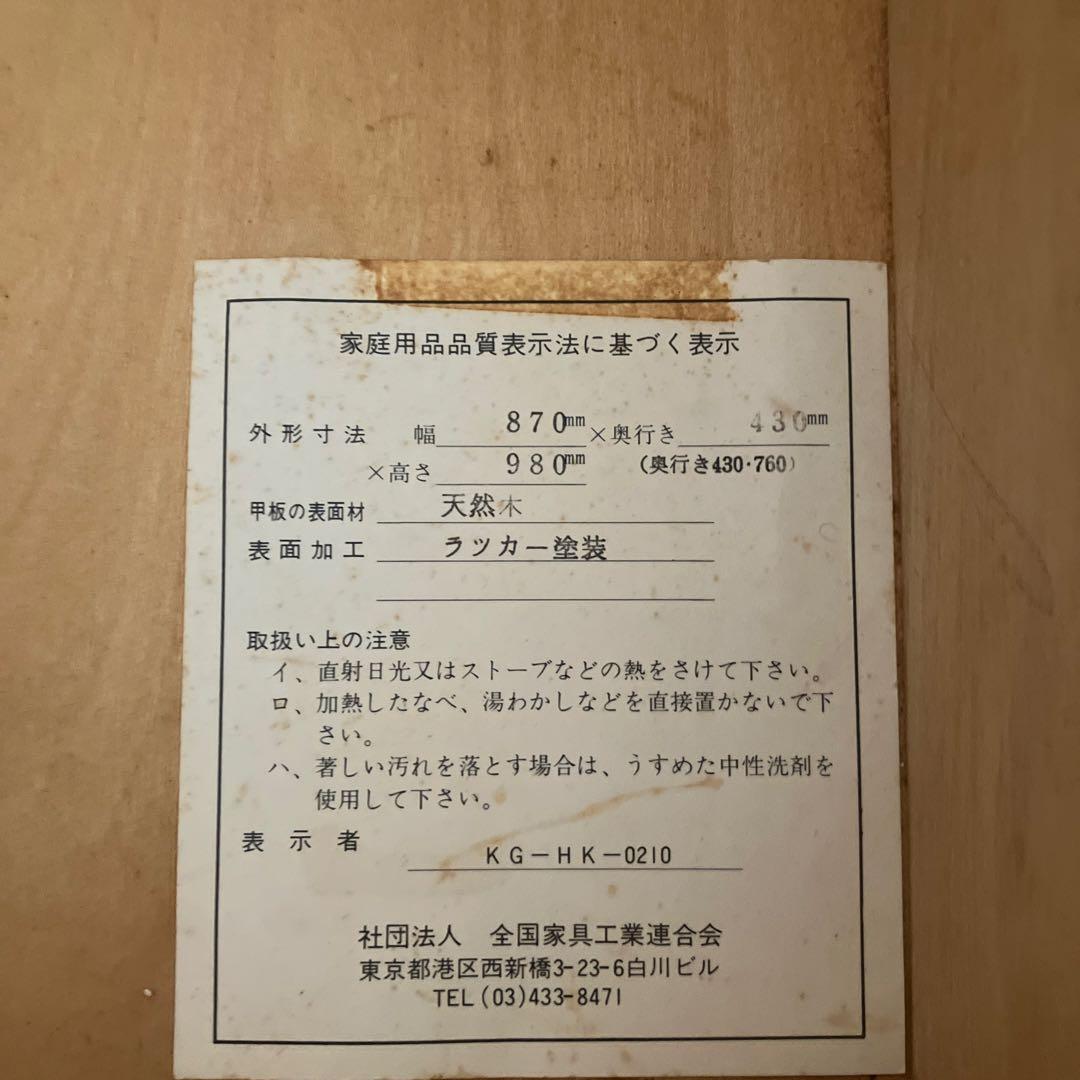 家庭用品品質表示法に基づく表示
外形寸法 幅 870mm ×奥行き 430mm
×高さ 980mm (奥行き430・760)
甲板の表面材 天然木
表面加工 ラッカー塗装
取扱い上の注意
イ、直射日光又はストーブなどの熱をさけて下さい。
ロ、加熱したなべ、湯わかしなどを直接置かないで下
さい。
ハ、著しい汚れを落とす場合は、うすめた中性洗剤を
使用して下さい。
表示者 KG-HK-0210
社団法人 全国家具工業連合会
東京都港区西新橋3-23-6白川ビル
TEL(03)433-8471